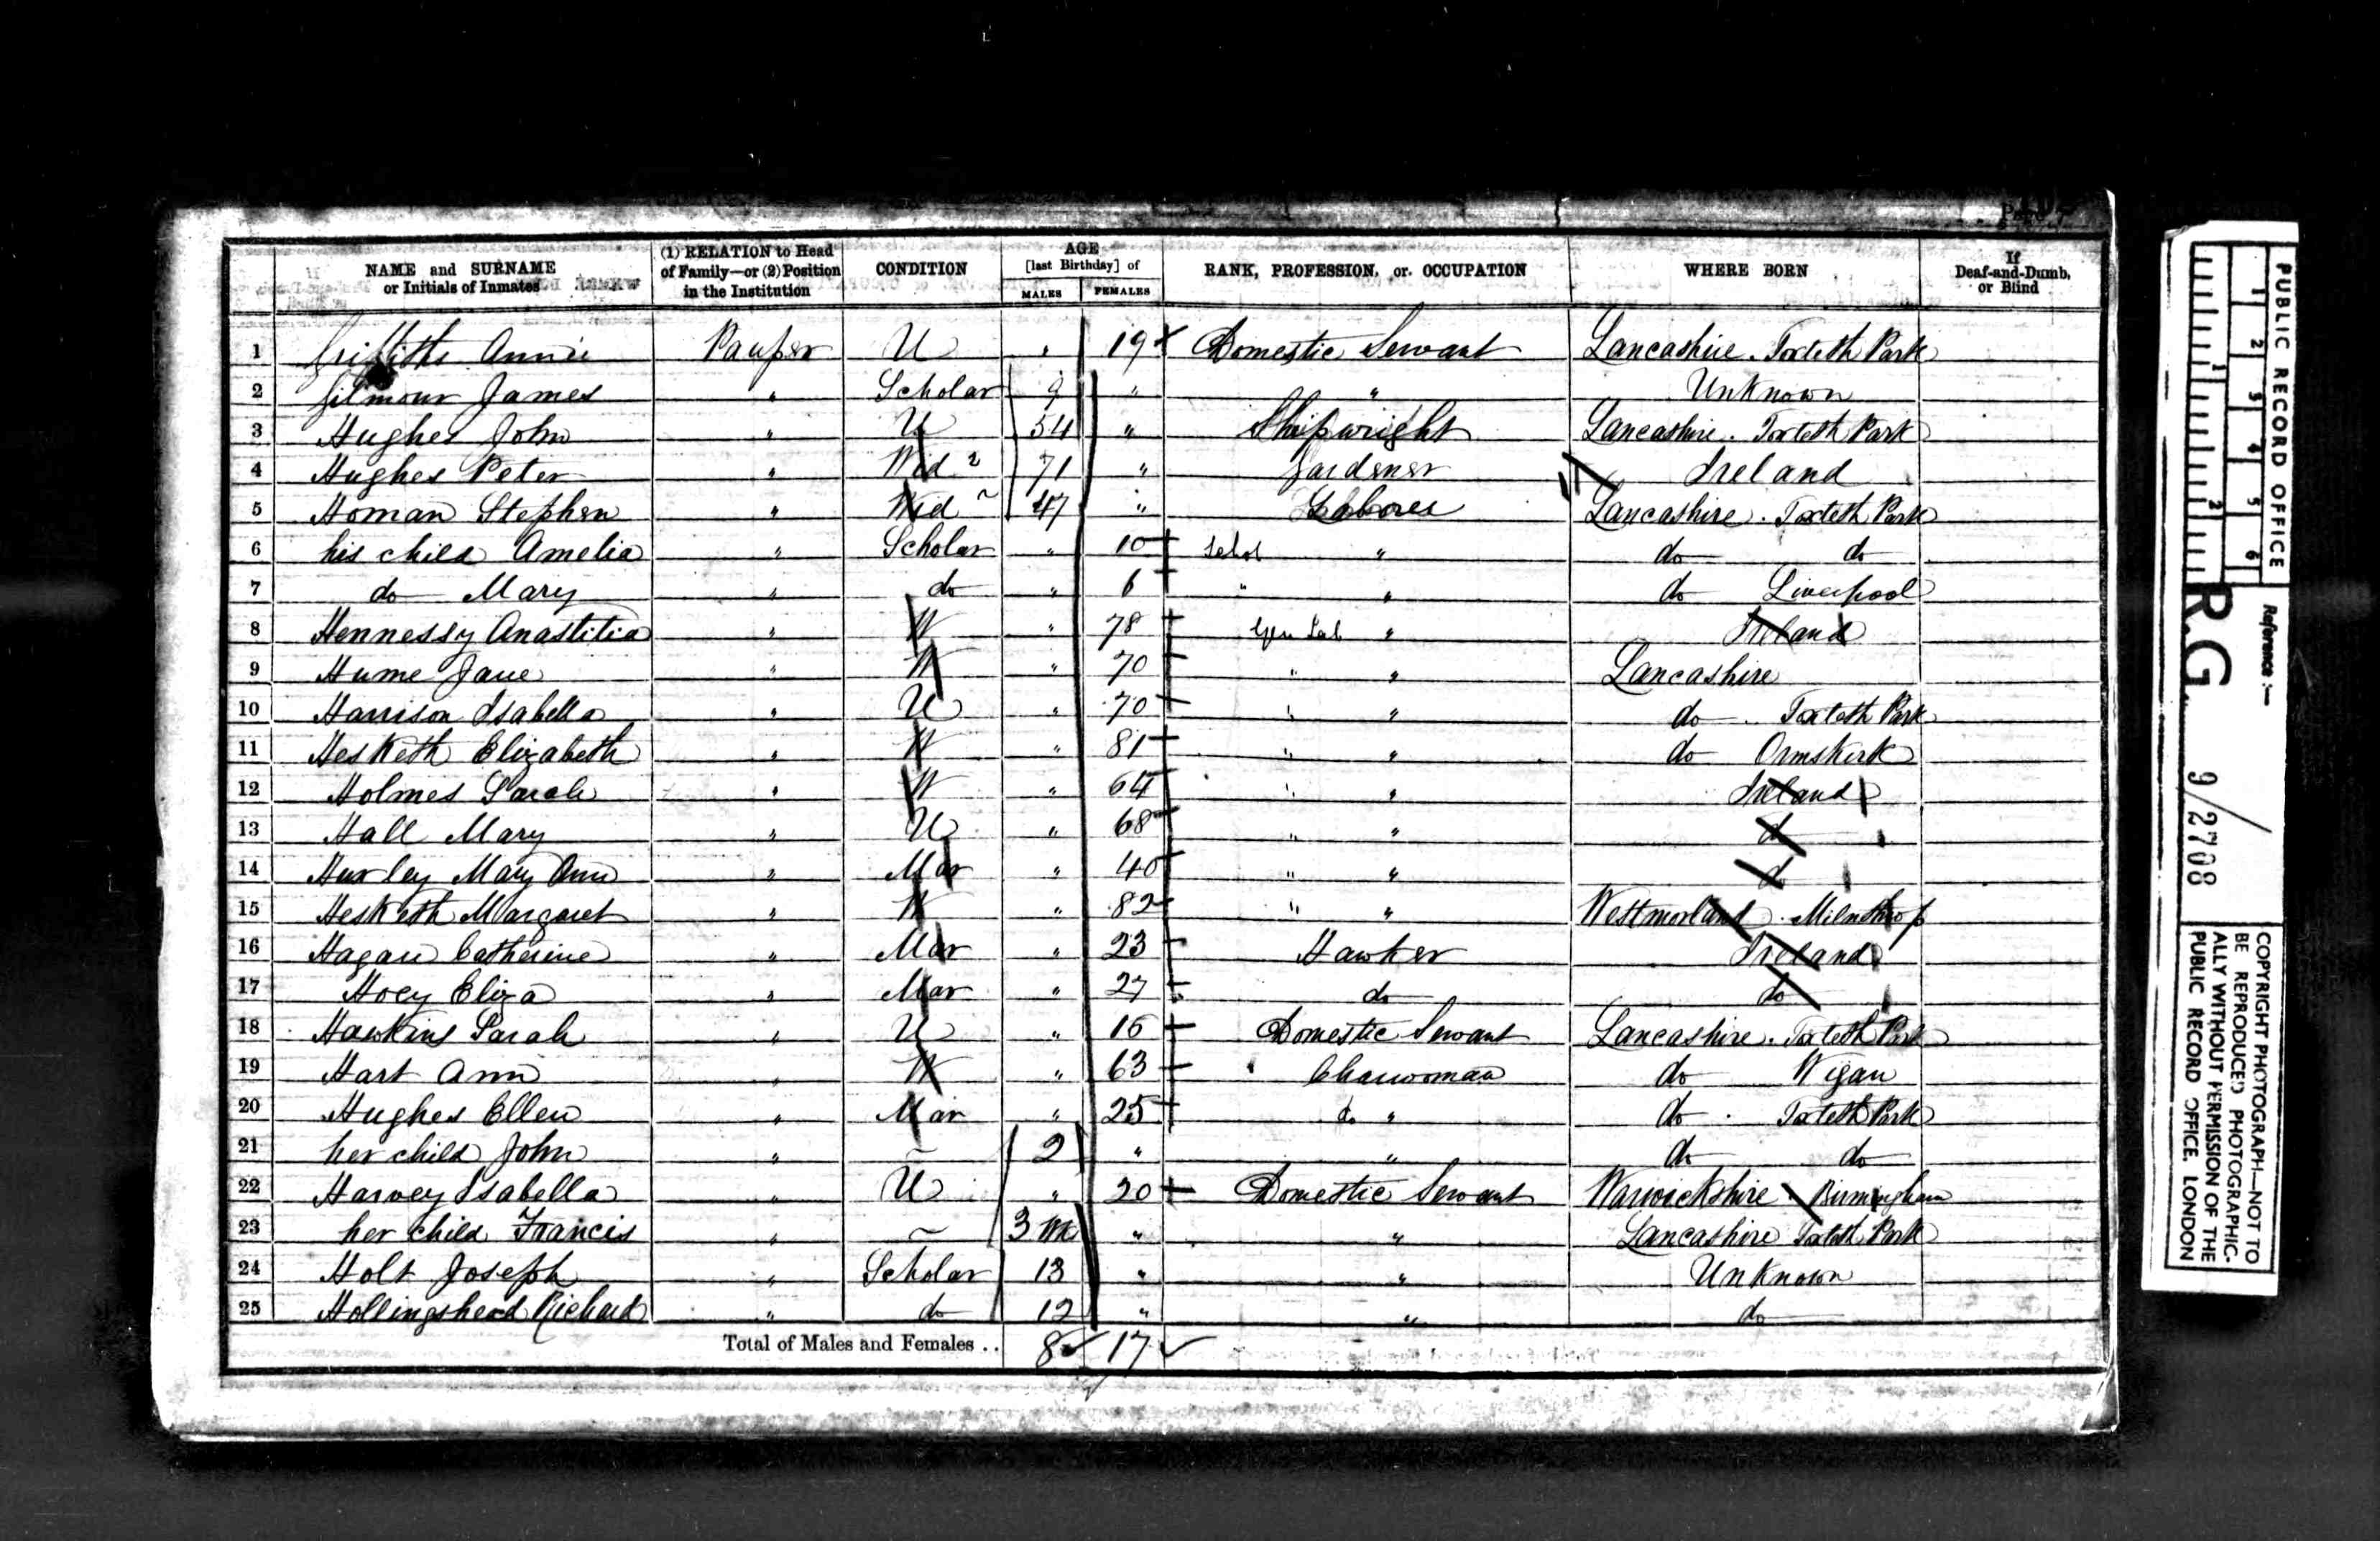 NAME and SURNAME or Initials of Inmates (1) RELATION to Head of Family—or (2) Position in the Institution CONDITION AGE [last Birthday] of MALES FEMALES RANK, PROFESSION, or OCCUPATION WHERE BORN If Deaf-and-Dumb, or Blind
1 Griffiths Annie Pauper U " 19 Domestic Servant Lancashire. Toxteth Park
2 Gilmour James " Scholar 9 " " Unknown
3 Hughes John " U 54 " Shipwright Lancashire. Toxteth Park
4 Hughes Peter " Wid 71 " Gardener Ireland
5 Homan Stephen " Wid 47 " Laborer Lancashire. Toxteth Park
6 his child Amelia " Scholar " 10 Schol " do do
7 do Mary " do " 6 " " do Liverpool
8 Hennessy Anastitia " W " 78 Gen Lab " Ireland
9 Hume Jane " W " 70 " " Lancashire
10 Harrison Isabella " U " 70 " " do Toxteth Park
11 Hesketh Elizabeth " W " 81 " " do Ormskirk
12 Holmes Sarah " W " 64 " " Ireland
13 Hall Mary " U " 68 " " do
14 Hurley Mary Ann " Mar " 40 " " do
15 Hesketh Margaret " W " 82 " " Westmorland. Milnthrop
16 Hagan Catherine " Mar " 23 Hawker Ireland
17 Hoey Eliza " Mar " 27 do do
18 Hawkins Sarah " U " 16 Domestic Servant Lancashire. Toxteth Park
19 Hart Ann " W " 63 Charwoman do Wigan
20 Hughes Ellen " Mar " 25 do " do Toxteth Park
21 her child John " — 2 " " do do
22 Harvey Isabella " U " 20 Domestic Servant Warwickshire Birmingham
23 her child Francis " — 3 m " " Lancashire Toxteth Park
24 Holt Joseph " Scholar 13 " " Unknown
25 Hollingshead Richard " do 12 " " do
Total of Males and Females .. 8 17
PUBLIC RECORD OFFICE
1 2 3 4 5 6
1 2
Reference :—
R.G. 9/2708
COPYRIGHT PHOTOGRAPH—NOT TO
BE REPRODUCED PHOTOGRAPHIC-
ALLY WITHOUT PERMISSION OF THE
PUBLIC RECORD OFFICE, LONDON